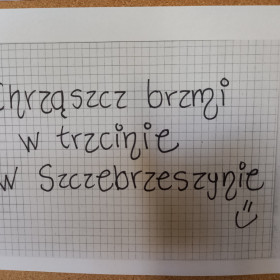 Chrząszcz brzmi
w trzcinie
w Szczebrzeszynie